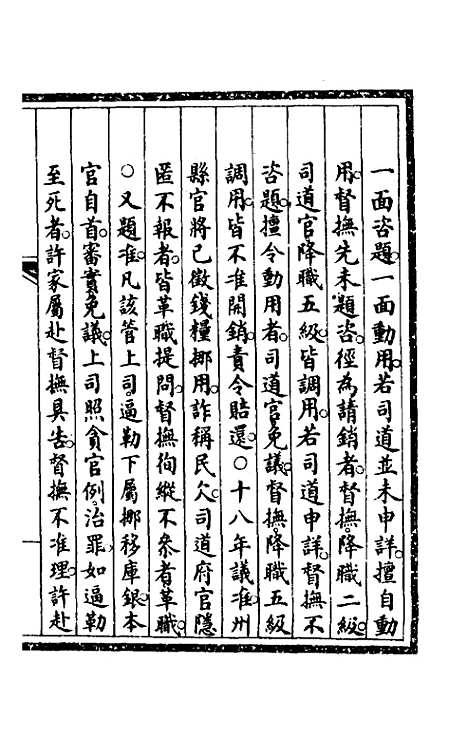 一面咨題。一面動用。若司道並未申詳。擅自動
用。督撫先未題咨。徑為請銷者。督撫。降職二級。
司道官降職五級。皆調用。若司道申詳。督撫不
咨題。擅令動用者。司道官免議。督撫。降職五級
調用。皆不准開銷。責令賠還。○十八年議准。州
縣官將已徵錢糧挪用。詐稱民欠。司道府官隱
匿不報者。皆革職提問。督撫徇縱不參者。革職。
○又題准。凡該管上司。逼勒下屬挪移庫銀。本
官自首。審實免議。上司照貪官例。治罪。如逼勒
至死者。許家屬赴督撫具告。督撫不准理。許赴